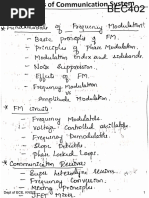 s of Communication System
BEC402
Fundamentals of Frequency Modulation:
- Basic principle of FM.
- Principles of Phase Modulation.
- Modulation Index and sidebands.
- Noise Suppression.
- Effects of FM.
- Frequency Modulation
Vs
Amplitude Modulation.
- FM circuits
- Frequency Modulators.
- Voltage Controlled oscillators.
- Frequency Demodulators.
- Slope Detectors.
- Phase Locked Loops.
- Communication Receiver
- Super heterodyne receiver
- Frequency Conversion.
- Mixing Principles
- JFET Mixer.
Dept of ECE,